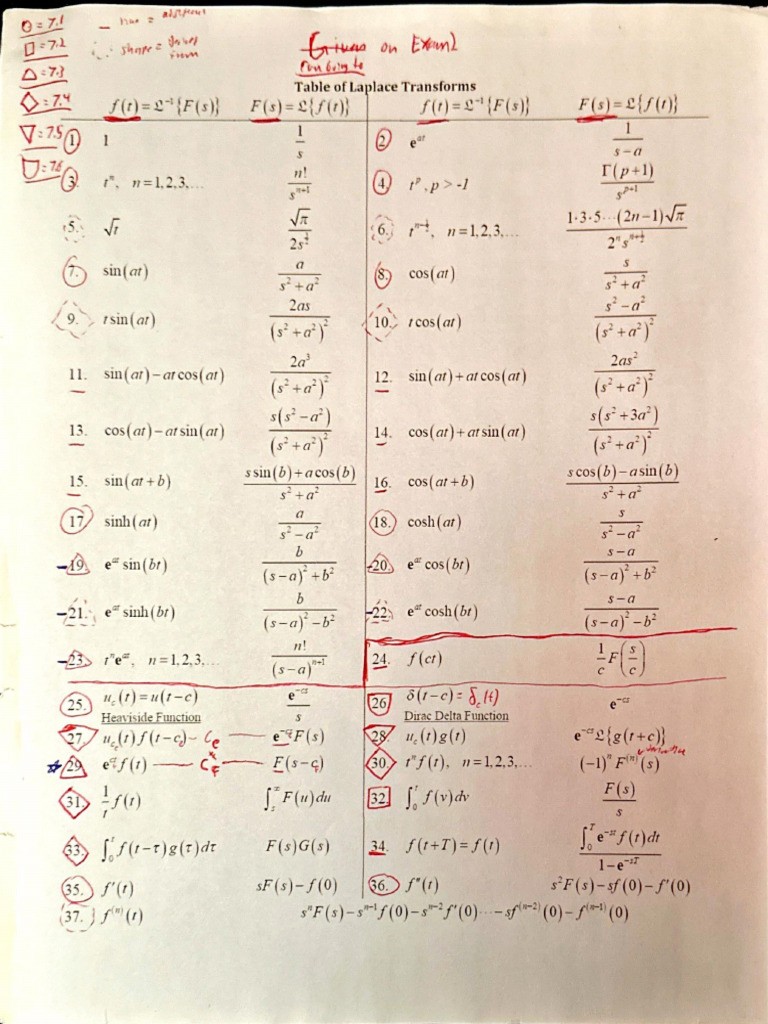 ○ = 7.1
□ = 7.2
△ = 7.3
◇ = 7.4
▽ = 7.5
= 7.6
line = additional
shape =
Given on Exam 2
Table of Laplace Transforms
f(t) = ℒ⁻¹{F(s)} F(s) = ℒ{f(t)} f(t) = ℒ⁻¹{F(s)} F(s) = ℒ{f(t)}
1. 1 1/s 2. e^(at) 1/(s−a)
3. tⁿ, n = 1,2,3,… n!/s^(n+1) 4. t^p, p > -1 Γ(p+1)/s^(p+1)
5. √t √π/(2s^(3/2)) 6. t^(n−1/2), n = 1,2,3,… 1·3·5⋯(2n−1)√π/(2ⁿ s^(n+1/2))
7. sin(at) a/(s²+a²) 8. cos(at) s/(s²+a²)
9. t sin(at) 2as/(s²+a²)² 10. t cos(at) (s²−a²)/(s²+a²)²
11. sin(at)−at cos(at) 2a³/(s²+a²)² 12. sin(at)+at cos(at) 2as²/(s²+a²)²
13. cos(at)−at sin(at) s(s²−a²)/(s²+a²)² 14. cos(at)+at sin(at) s(s²+3a²)/(s²+a²)²
15. sin(at+b) (s sin(b)+a cos(b))/(s²+a²) 16. cos(at+b) (s cos(b)−a sin(b))/(s²+a²)
17. sinh(at) a/(s²−a²) 18. cosh(at) s/(s²−a²)
19. e^(at) sin(bt) b/((s−a)²+b²) 20. e^(at) cos(bt) (s−a)/((s−a)²+b²)
21. e^(at) sinh(bt) b/((s−a)²−b²) 22. e^(at) cosh(bt) (s−a)/((s−a)²−b²)
23. tⁿe^(at), n = 1,2,3,… n!/(s−a)^(n+1) 24. f(ct) (1/c)F(s/c)
25. u_c(t) = u(t−c) e^(−cs)/s 26. δ(t−c) = δ_c(t) e^(−cs)
Heaviside Function Dirac Delta Function
27. u_c(t) f(t−c) e^(−cs)F(s) 28. u_c(t)g(t) e^(−cs)ℒ{g(t+c)}
29. e^(ct) f(t) F(s−c) 30. tⁿf(t), n = 1,2,3,… (−1)ⁿ F^(n)(s)
31. (1/t) f(t) ∫_s^∞ F(u)du 32. ∫_0^t f(v)dv F(s)/s
33. ∫_0^t f(t−τ)g(τ)dτ F(s)G(s) 34. f(t+T) = f(t) ∫_0^T e^(−st) f(t)dt/(1−e^(−sT))
35. f′(t) sF(s)−f(0) 36. f″(t) s²F(s)−sf(0)−f′(0)
37. f^(n)(t) sⁿF(s)−s^(n−1)f(0)−s^(n−2)f′(0)⋯−sf^(n−2)(0)−f^(n−1)(0)